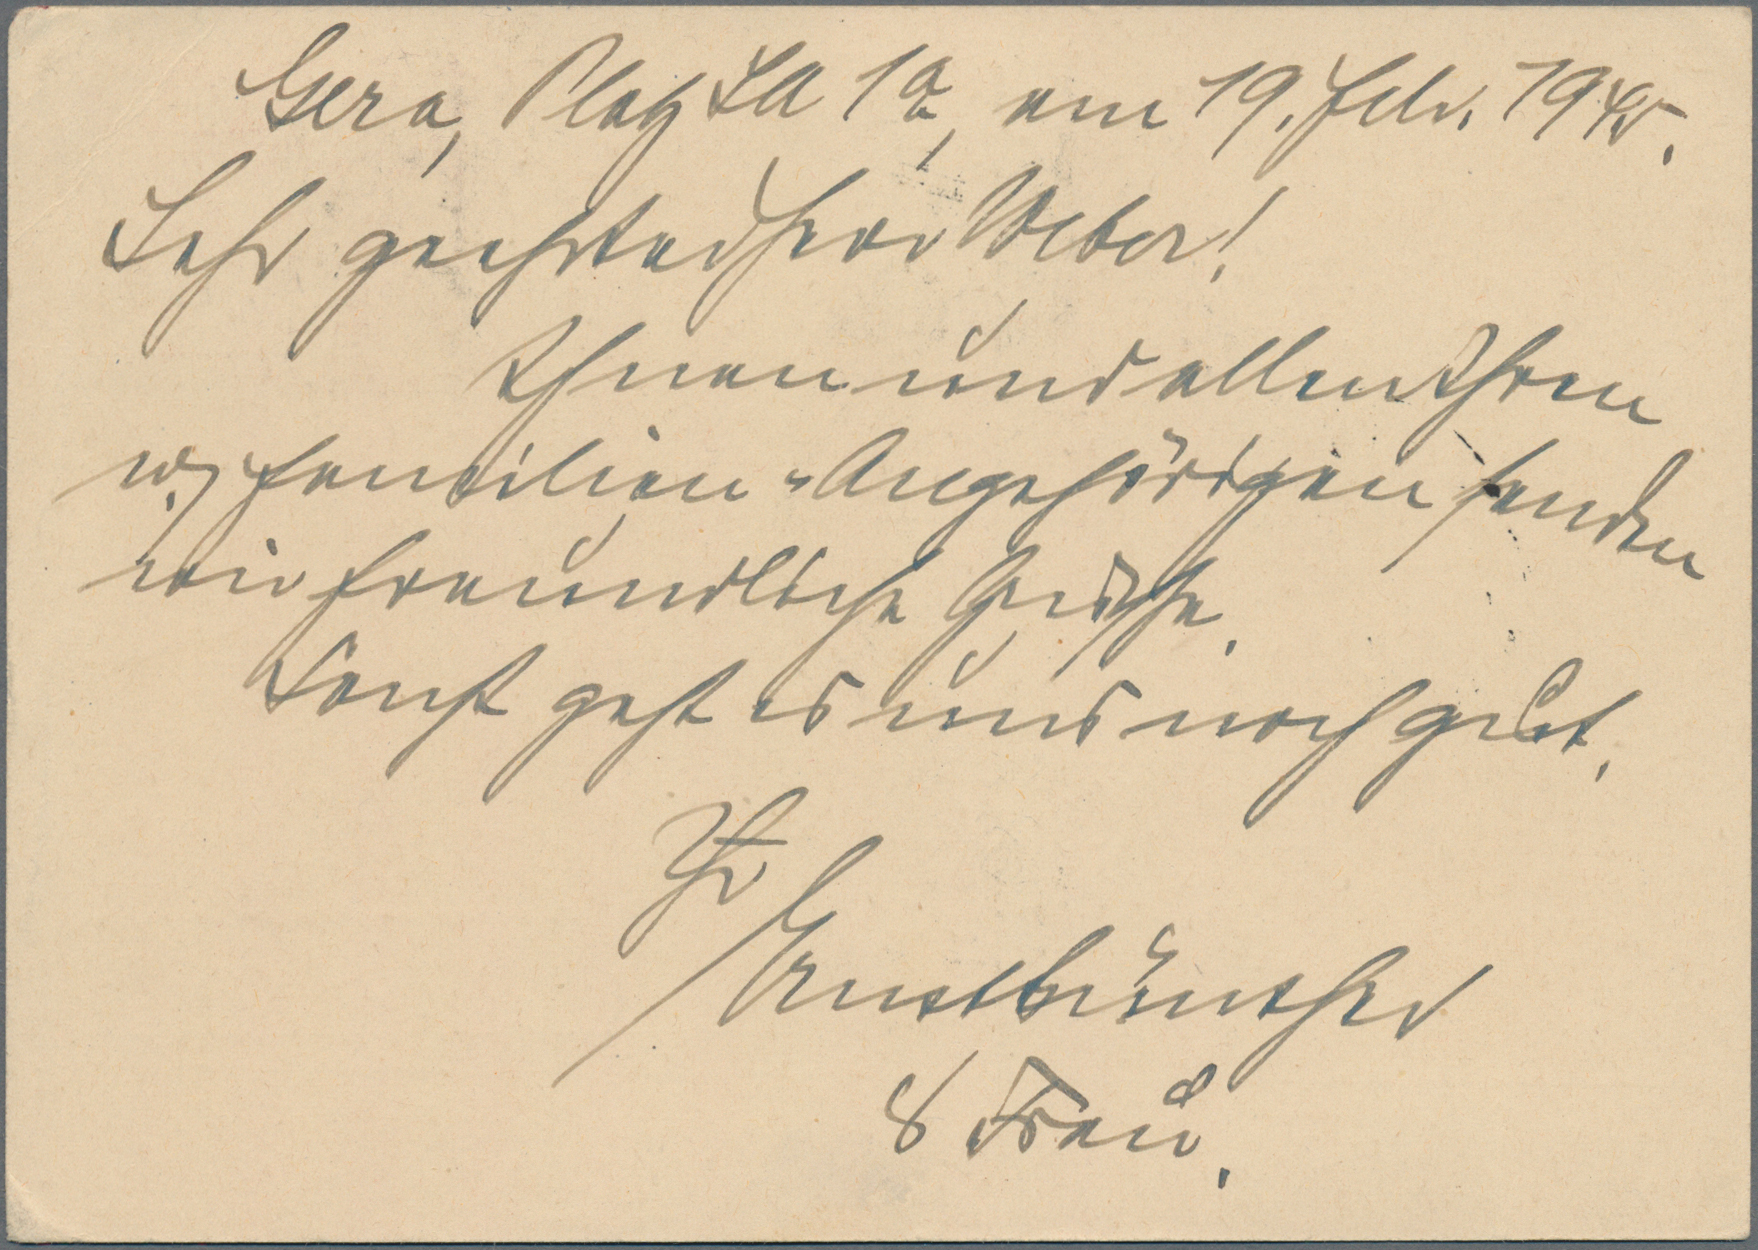 Gera, Platz SA 1a, am 19. Febr. 1945.
Sehr geehrter Herr Weber!
Ihnen und allen Ihren
w. Familien-Angehörigen senden
wir freundliche Grüße.
Sonst geht es uns noch gut.
Ihr
Ernst Günther
& Frau.